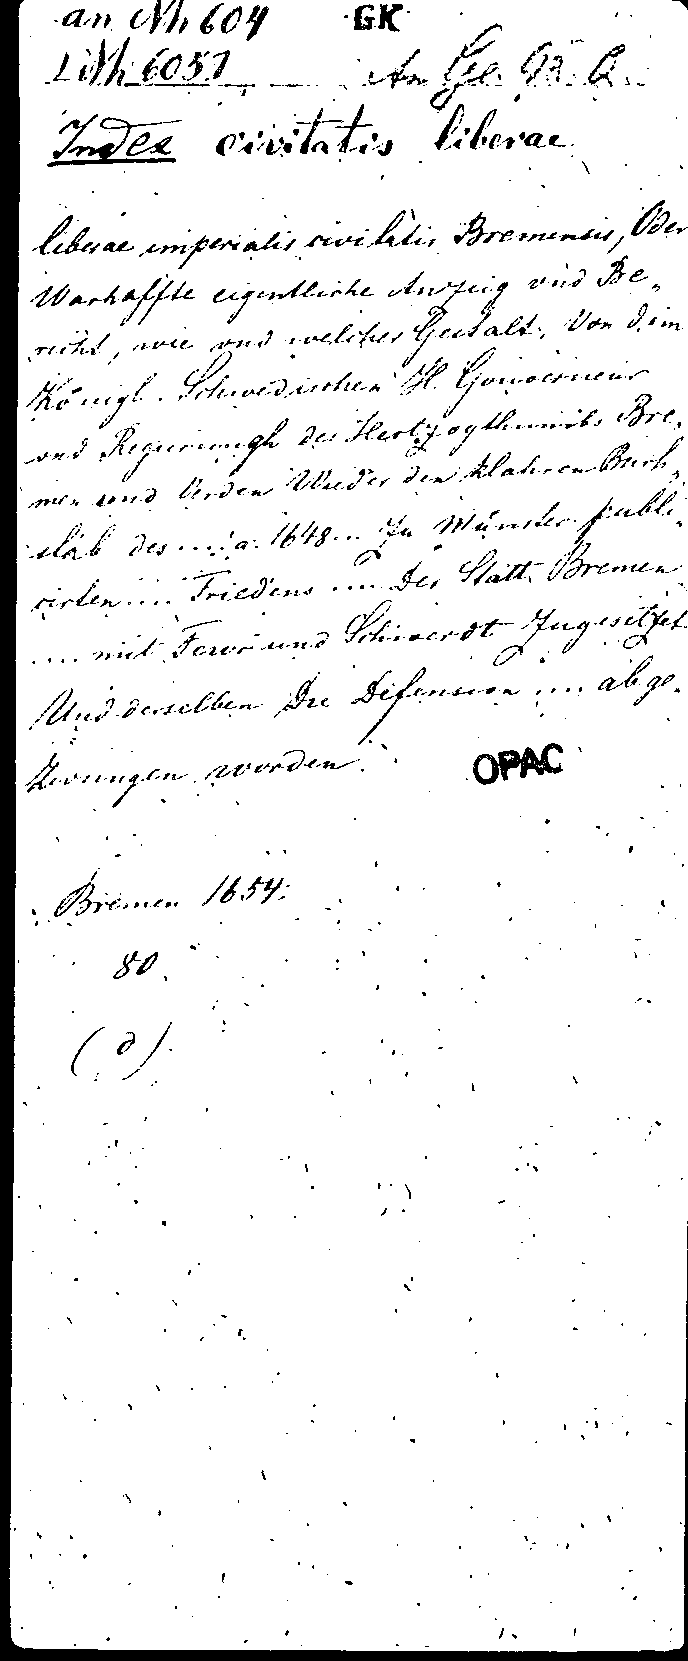 an Nh 604 GK
LiNh 6051 An Ge. 93. Q.
Index civitatis liberae
liberae imperialis civitatis Bremensis, Oder
Warhaffte eigentliche Anzeig vnd Be-
richt, wie vnd welcher Gestalt, Von dem
Königl. Schwedischen H. Gouverneur
vnd Regierungh des Hertzogthumbs Bre-
men und Verden Wieder den klahren Buch-
stab des ... a. 1648 ... Zu Münster publi-
cirten ... Friedens ... Der Statt Bremen
... mit Fewr und Schwerdt Zugesetzet
Und derselben Die Defension ... abge-
zwungen worden.
OPAC
Bremen 1654.
80.
(d)